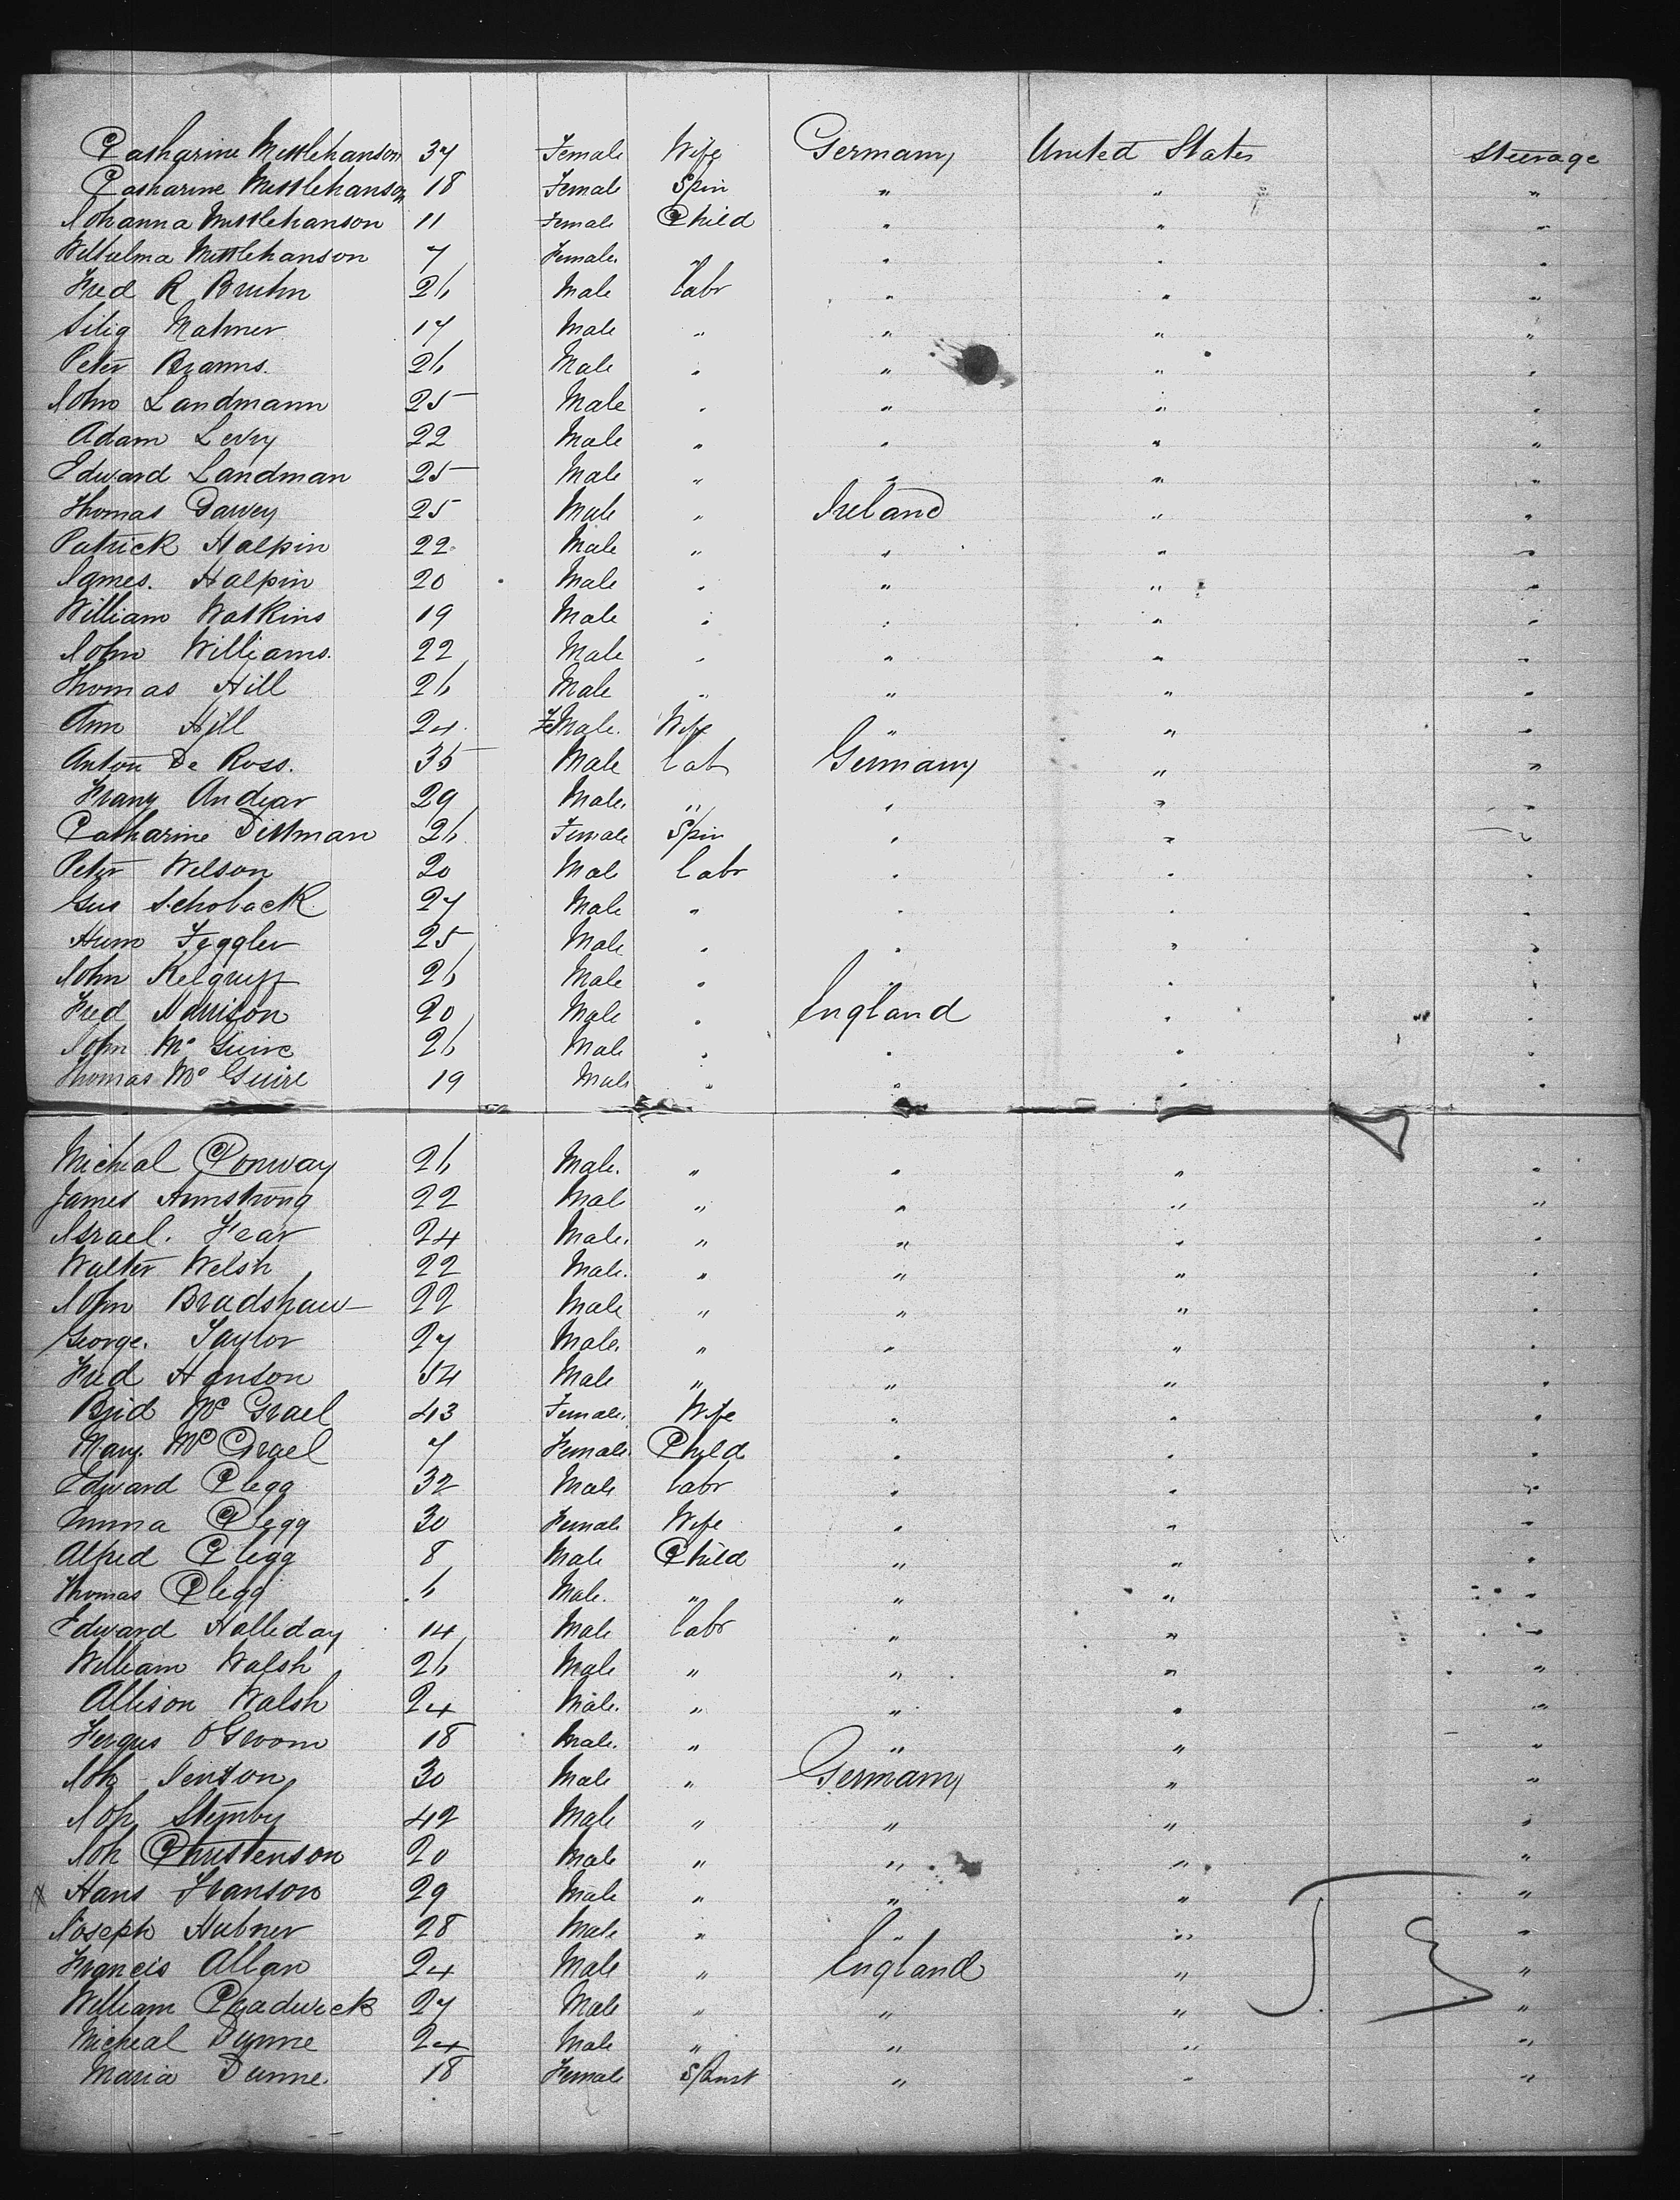 Catharine Mittlehanson 37 Female Wife Germany United States Steerage
Catharine Mittlehanson 18 Female Spin " " "
Johanna Mittlehanson 11 Female Child " " "
Wilhelma Mittlehanson 7 Female " " " "
Fred R Bruhn 26 Male Labr " " "
Silig Matmer 17 Male " " " "
Peter Bramms. 26 Male " " " "
John Landmann 25 Male " " " "
Adam Levy 22 Male " " " "
Edward Landman 25 Male " " " "
Thomas Garvey 25 Male " Ireland " "
Patrick Halpin 22 Male " " " "
James. Halpin 20 Male " " " "
William Watkins 19 Male " " " "
John Williams. 22 Male " " " "
Thomas Hill 26 Male " " " "
Ann Hill 24 FeMale. Wife " " "
Anton De Ross. 35 Male Lab Germany " "
Franz Andear 29 Male. " " " "
Catharine Dittman 26 Female Spin " " "
Peter Wilson 20 Male Labr " " "
Gus Schoback 27 Male " " " "
Hum Feggler 25 Male " " " "
John Kelgruff 26 Male " " " "
Fred Harrison 20 Male " England " "
John Mc Guire 26 Male " " " "
Thomas Mc Guire 19 Male " " " "
Micheal Conway 26 Male. " " " "
James Armstrong 22 Male " " " "
Israel. Fear 24 Male. " " " "
Walter Welsh 22 Male. " " " "
John Bradshaw 22 Male " " " "
George. Taylor 27 Male. " " " "
Fred Hanson 54 Male " " " "
Brid Mc Grael 43 Female. Wife " " "
Mary. Mc Grael 7 Female. Child " " "
Edward Clegg 32 Male Labr " " "
Emma Clegg 30 Female Wife " " "
Alfred Clegg 8 Male Child " " "
Thomas Clegg 6 Male. " " " "
Edward Halliday 14 Male Labr " " "
William Walsh 26 Male " " " "
Allison Walsh 24 Male. " " " "
Fergus O'Groom 18 Male. " " " "
Joh Jenson 30 Male " Germany " "
Joh Stemby 42 Male " " " "
Joh Christenson 20 Male " " " "
X Hans Franson 29 Male " " " "
Joseph Hubner 28 Male " " " "
Francis Allan 24 Male " England " "
William Chadwick 27 Male " " " "
Micheal Dunne 24 Male " " " "
Maria Dunne. 18 Female Spinst " " "